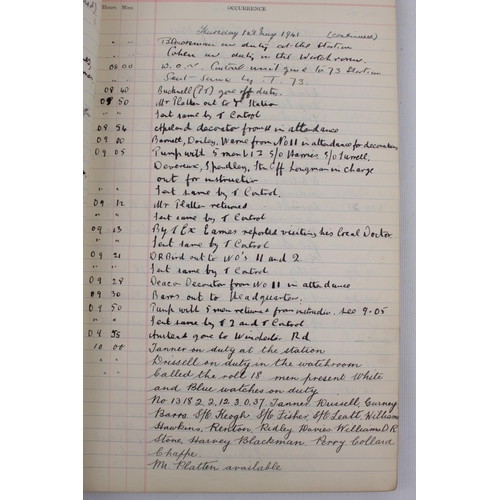 Hours Mins OCCURRENCE
Thursday 1st May 1941 (continued)
" " on duty at the Station
" " Cohen on duty in the Watchroom.
08 00 W.O.V. Control unit gone to 73 Station
" " Sent same by T. 73.
08 40 Bucknell (PT) gone off duty.
08 50 Mr Platten out to Y Station
" " Sent same by Y Control
08 54 decorator from 11 in attendance
09 00 Barnett, Darley, Warne from No 11 in attendance for decorations
09 05 Pump with 5 men S/O Harries S/O Turrell.
Deverause, Spendley, Longman in charge
out for instruction
" " Sent same by Y Control.
09 12 Mr Platten returned
" " Sent same by Y Control
09 13 By Y Ex Eames reported visiting his local Doctor
" " Sent same by Y Control.
09 21 DR Bird out to WO's 11 and 2
" " Sent same by Y Control
09 28 Deacon Decorator from WO 11 in attendance
09 30 Barrs out to Headquarters.
09 50 Pump with 5 men returned from instruction. see 9.05
" " Sent same by Y 2 and Y Control
09 55 gone to Winchester Rd
10 00 Tanner on duty at the station
" " Drissell on duty in the watchroom
Called the roll 18 men present White
and Blue watches on duty
No 13 18 2, 2, 12, 3, 0, 37. Tanner Drissell, Gurney
Barrs. S/O Keogh. S/O Fisher, S/O Leatt, William
Hawkins, Renton, Ridley Davies Williams D.R.
Stone Harvey Blackman Percy Collard
Chappe.
Mr Platten available